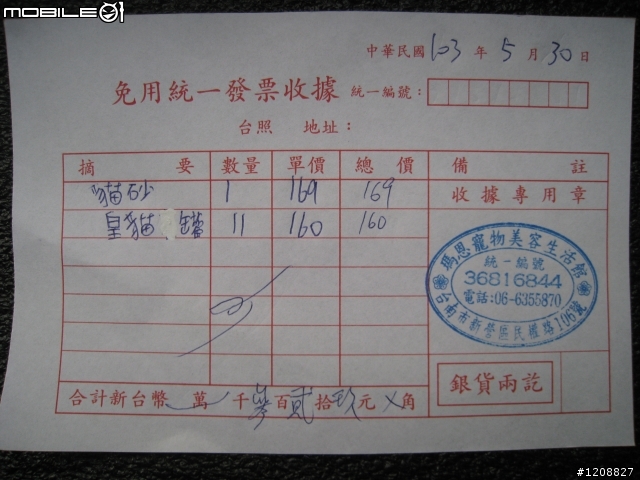 mobile01
中華民國 103 年 5 月 30 日
免用統一發票收據 統一編號:
台照 地址:
摘要 數量 單價 總價 備註
貓砂 1 169 169 收據專用章
皇貓 罐 11 160 160
瑪恩寵物美容生活館
統一編號
36816844
電話:06-6355870
台南市新營區民權路106號
合計新台幣 萬 千 參 百 貳 拾 玖 元 X 角
銀貨兩訖
#1208827